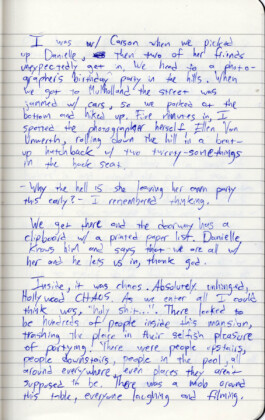 I was w/ Carson when we picked
up Danielle, then two of her friends
unexpectedly get in. We head to a photo-
grapher's birthday party in the hills. When
we got to Mulholland the street was
jammed w/ cars, so we parked at the
bottom and hiked up. Five minutes in, I
spotted the photographer herself Ellen Von
Unwerth, rolling down the hill in a beat-
up hatchback w/ two twenty-somethings
in the back seat.
- Why the hell is she leaving her own party
this early? - I remembered thinking.
We get there and the doorway has a
clipboard w/ a printed paper list. Danielle
knows him and says that we are all w/
her and he lets us in, thank god.
Inside, it was chaos. Absolutely unhinged,
Hollywood CHAOS. As we enter all I could
think was, "holy shit..." There looked to
be hundreds of people inside this mansion,
trashing the place in their selfish pleasure
of partying. There were people upstairs,
people downstairs, people in the pool, all
around everywhere even places they aren't
supposed to be. There was a mob around
this table, everyone laughing and filming.